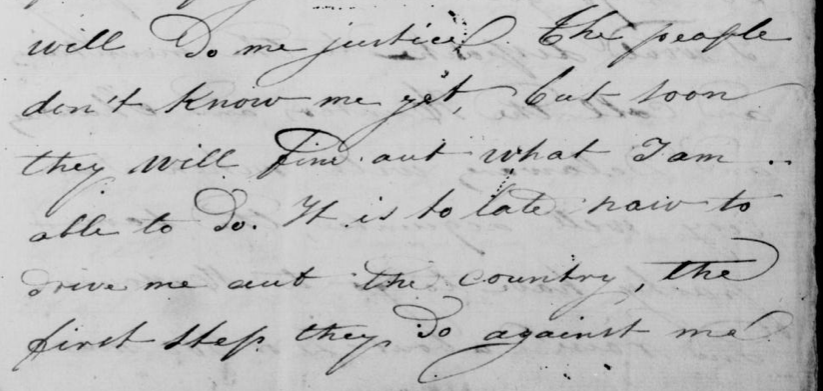 will Do me justice. The people
don't know me yet, but soon
they will fine out what I am
able to do. It is to late now to
drive me out the country, the
first step they Do against me